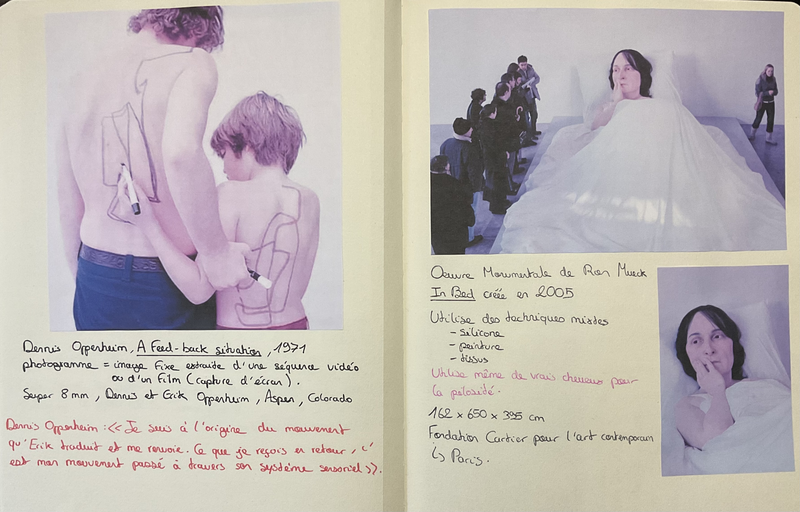 Dennis Oppenheim, A Feed-back situation, 1971
photogramme = image fixe extraite d'une séquence vidéo
ou d'un film (capture d'écran).
Super 8mm, Dennis et Erik Oppenheim, Aspen, Colorado
Dennis Oppenheim : << Je suis à l'origine du mouvement
qu'Erik traduit et me renvoie. Ce que je reçois en retour, c'
est mon mouvement passé à travers son système sensoriel >>.
Oeuvre Monumentale de Ron Mueck
In Bed créée en 2005
Utilise des techniques mixtes
- silicone
- peinture
- tissus
Utilise même de vrais cheveux pour
la pilosité.
162 x 650 x 395 cm
Fondation Cartier pour l'art contemporain
↳ Paris.